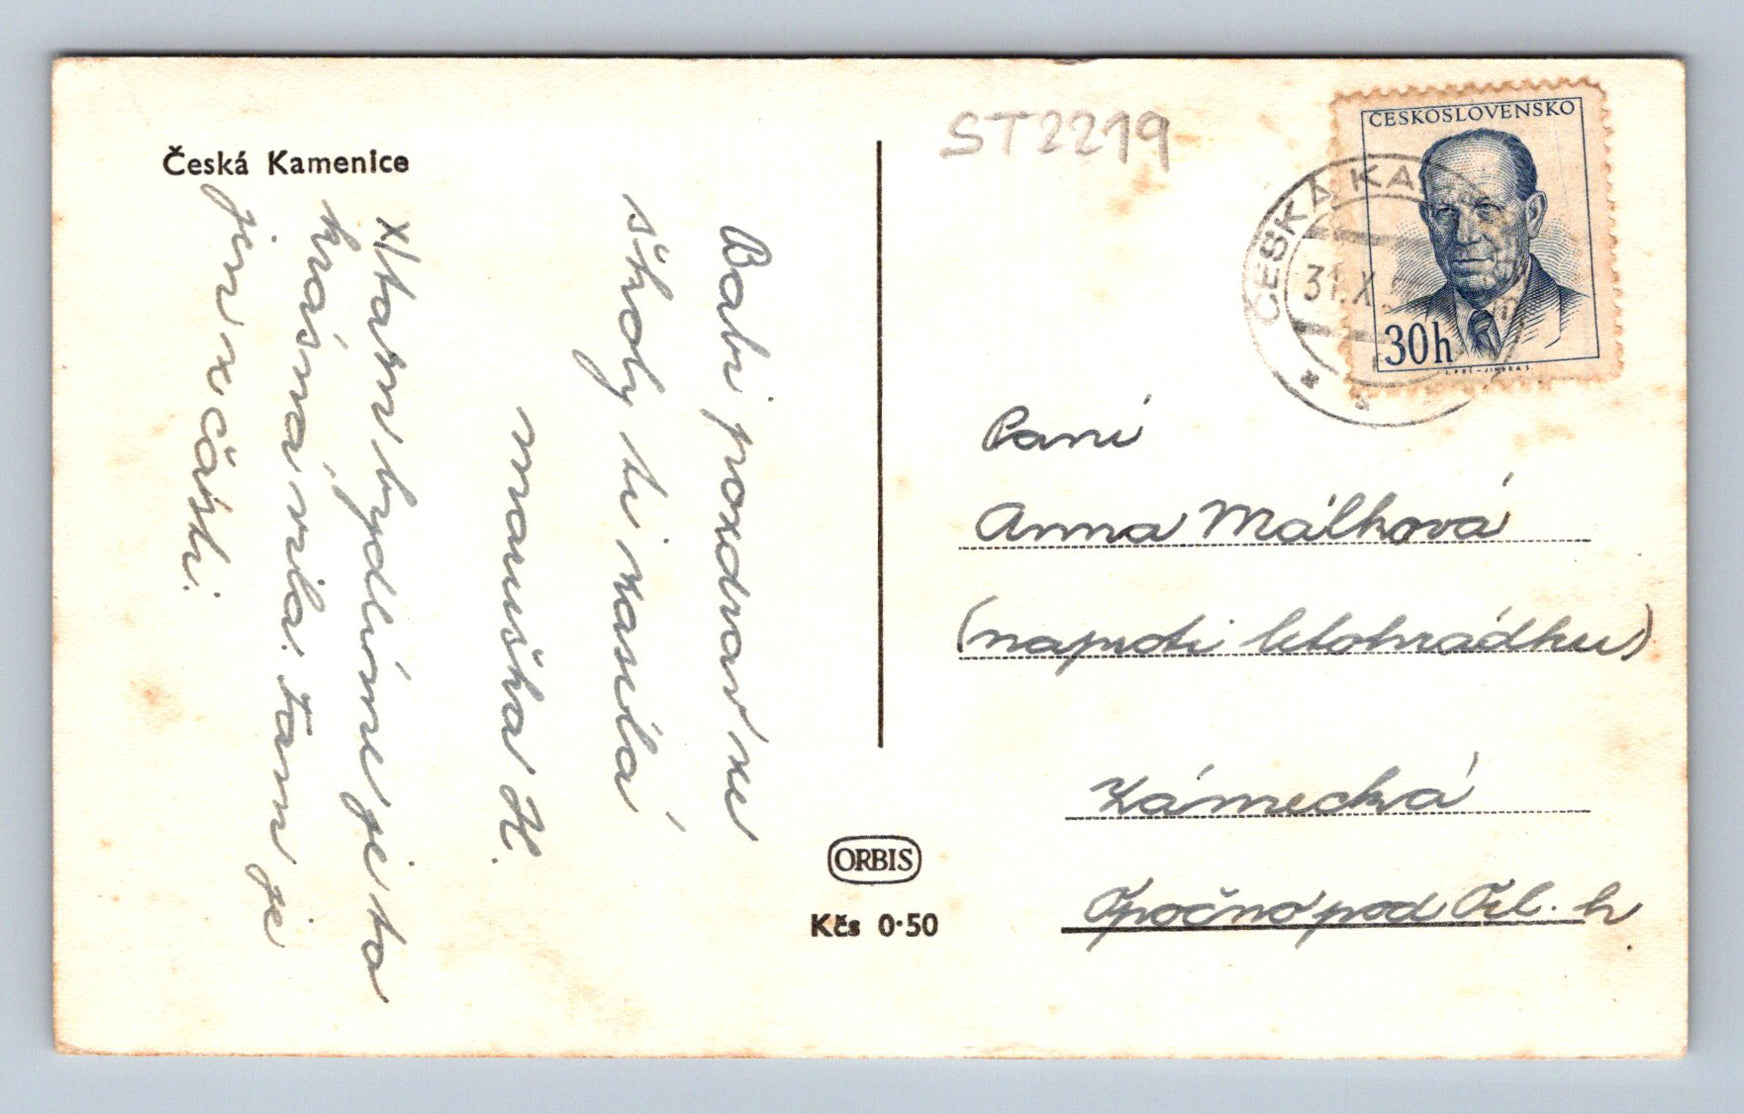 Česká Kamenice
Babi pozdrav ze
školy ti zasílá
maruška H.
x/ tady bydlíme je to
krásná vila. Tam je
jen x části.
ORBIS
Kčs 0·50
ST2219
ČESKOSLOVENSKO
30h
ČESKÁ KA
31.X.
Paní
Anna Málková
(naproti letohrádku)
Zámecká
Opočno pod Orl. h.